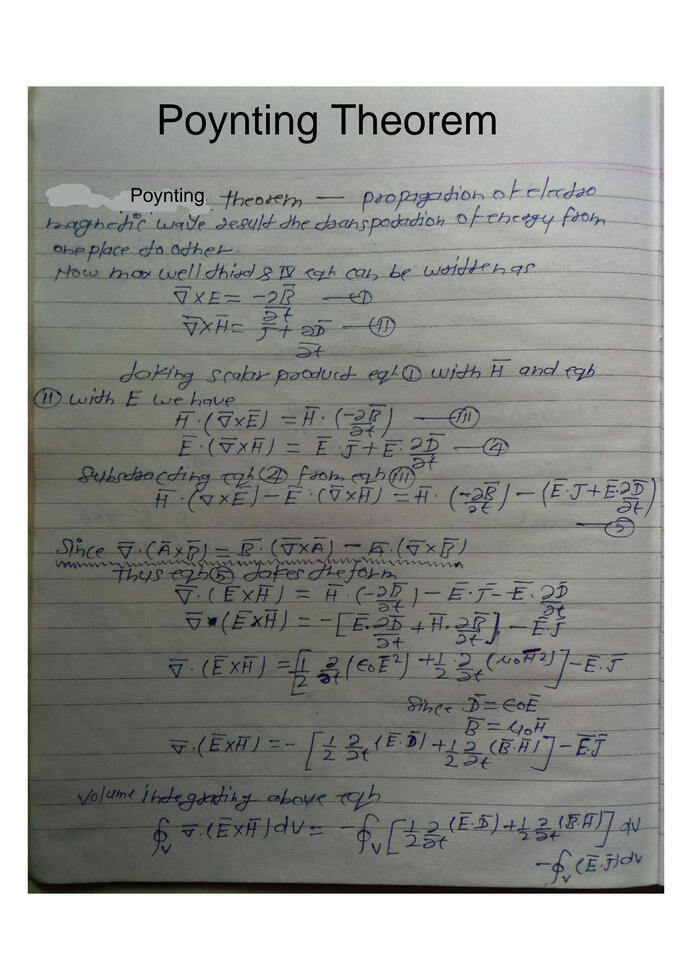 Poynting Theorem
Poynting theorem — propagation of electro
magnetic wave result the transportation of energy from
one place to other.
Now max well third & IV eqn can be written as
∇̅×E = -∂B̅/∂t —①
∇̅×H̅ = J̅ + ∂D̅/∂t —(II)
taking scalar product eqn① with H̅ and eqn
(II) with E we have
H̅·(∇̅×E̅) = H̅·(-∂B̅/∂t) —(III)
E̅·(∇̅×H̅) = E̅·J̅ + E̅·∂D̅/∂t —④
Substracting eqn④ from eqn(III)
H̅·(∇̅×E̅) - E̅·(∇̅×H̅) = H̅·(-∂B̅/∂t) - (E̅·J + E̅·∂D̅/∂t)
—⑤
Since ∇̅·(A̅×B̅) = B̅·(∇̅×A̅) - A̅·(∇̅×B̅)
Thus eqn⑤ takes the form
∇̅·(E̅×H̅) = H̅·(-∂B̅/∂t) - E̅·J̅ - E̅·∂D̅/∂t
∇̅·(E̅×H̅) = -[E̅·∂D̅/∂t + H̅·∂B̅/∂t] - E̅·J̅
∇̅·(E̅×H̅) = [1/2 ∂/∂t(ϵ0E̅²) + 1/2 ∂/∂t(μ0H̅²)] - E̅·J̅
Since D̅ = ϵ0E̅
B̅ = μ0H̅
∇̅·(E̅×H̅) = -[1/2 ∂/∂t(E̅·D̅) + 1/2 ∂/∂t(B̅·H̅)] - E̅·J̅
Volume integrating above eqn
∮v ∇̅·(E̅×H̅)dv = -∮v[1/2 ∂/∂t(E̅·D̅) + 1/2 ∂/∂t(B̅·H̅)]dv
-∮v(E̅·J̅)dv